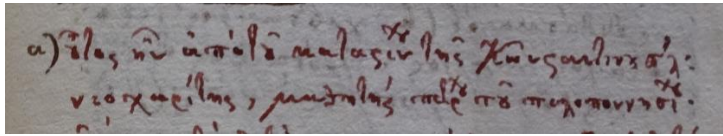 α) οὗτος ἦν ἀπὸ τοῦ καταστίνου τῆς Κωνσταντινουπόλ:
νεοχωρίτης, μαθητὴς πέτρου τοῦ πελοποννησίου.